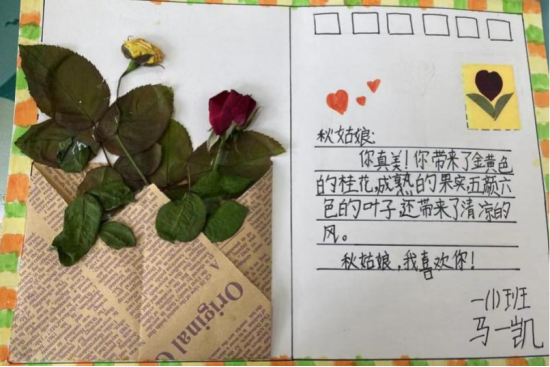 秋姑娘:
你真美!你带来了金黄色
的桂花,成熟的果实,五颜六
色的叶子,还带来了清凉的
风。
秋姑娘,我喜欢你!
一(1)班
马一凯
Original